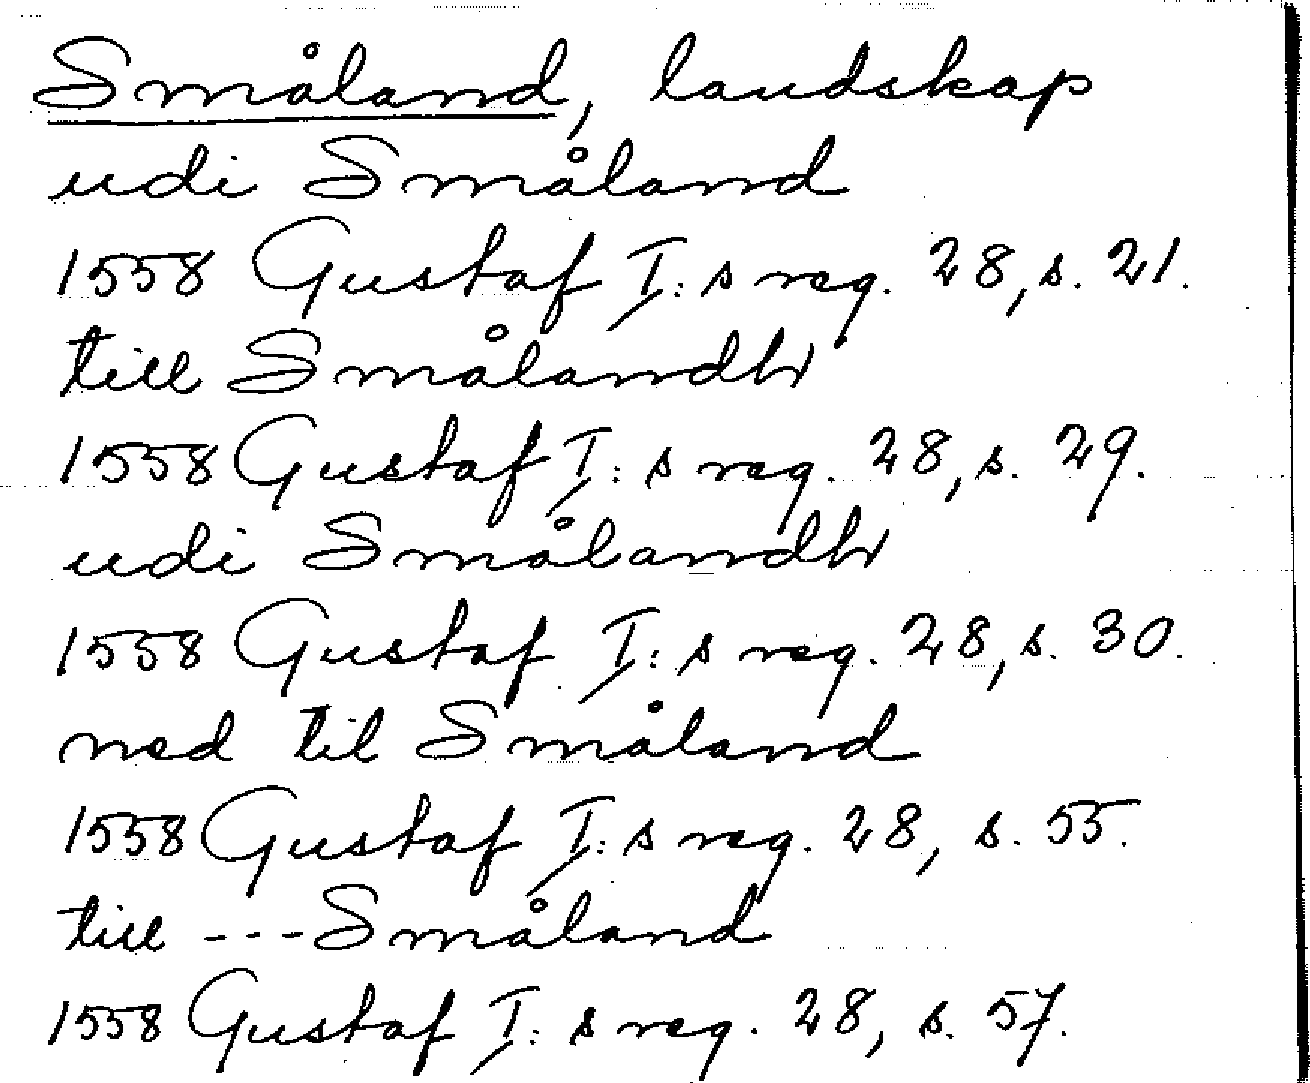 Småland, landskap
udi Småland
1558 Gustaf I:s reg. 28, s. 21.
till Smålandh
1558 Gustaf I:s reg. 28, s. 29.
udi Smålandh
1558 Gustaf I:s reg. 28, s. 30.
ned til Småland
1558 Gustaf I:s reg. 28, s. 55.
till --- Småland
1558 Gustaf I:s reg. 28, s. 57.